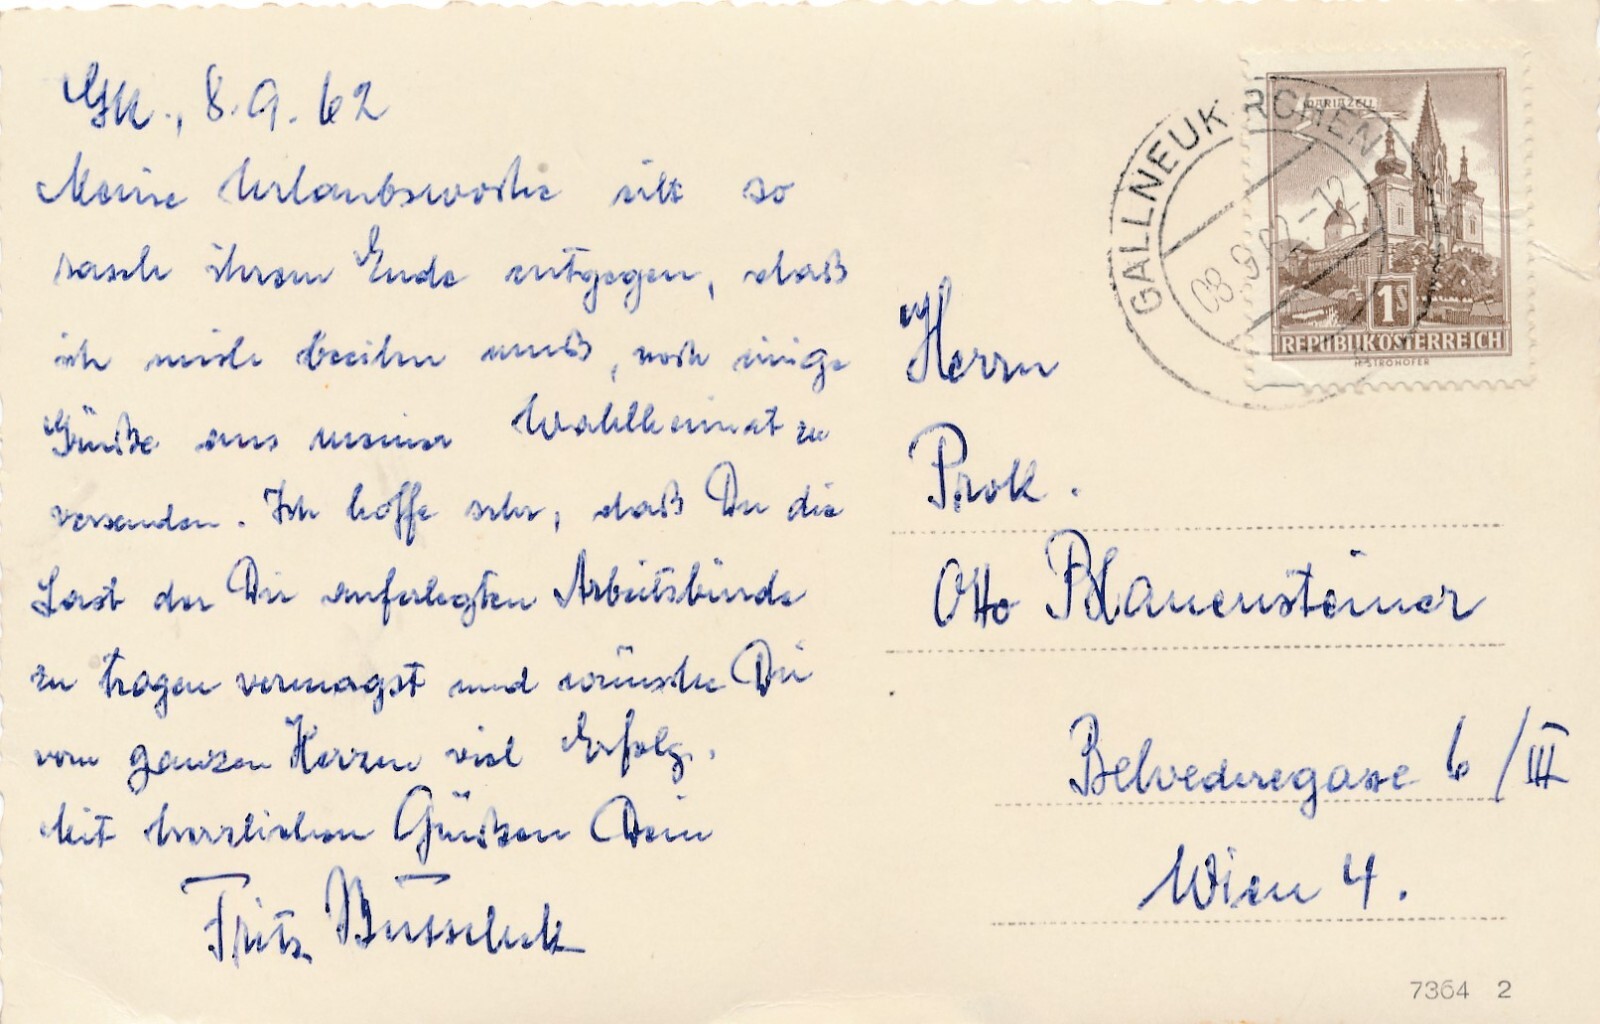 Gk., 8.9.62
Meine Urlaubswoche eilt so
rasch ihrem Ende entgegen, daß
ich mich beeilen muß, noch einige
Grüße aus meiner Wahlheimat zu
versenden. Ich hoffe sehr, daß Du die
Last der Dir auferlegten Arbeitsbürde
zu tragen vermagst und wünsche Dir
vom ganzen Herzen viel Erfolg.
Mit herzlichen Grüßen Dein
Fritz
GALLNEUKIRCHEN
08.9.62-12
MARIAZELL
1S
REPUBLIK ÖSTERREICH
H.STROHOFER
Herrn
Prok.
Otto Blauensteiner
Belvederegasse 6/III
Wien 4.
7364 2